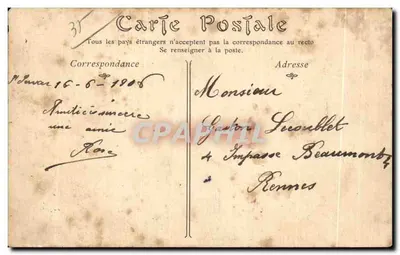 35
Carte Postale
Tous les pays étrangers n'acceptent pas la correspondance au recto
Se renseigner à la poste.
Correspondance
Adresse
16-6-1906
Amitié sincère
une amie
Rose
Monsieur
Gaston Lecoublet
4 Impasse Beaumont
Rennes
CPHARTI